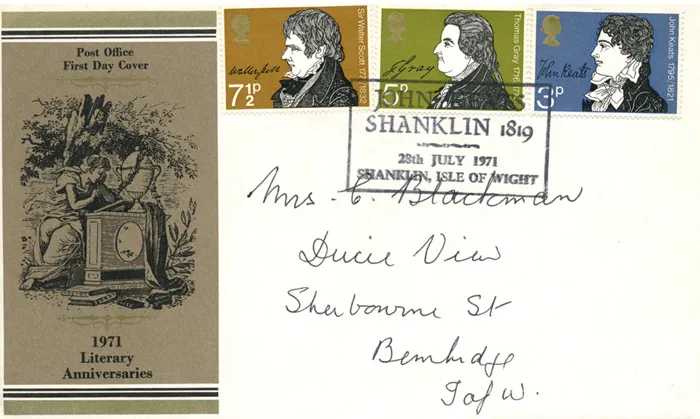 Post Office
First Day Cover
1971
Literary
Anniversaries
Walter Scott
7½P
Sir Walter Scott 1771-1832
T Gray
5P
Thomas Gray 1716-1771
John Keats
3P
John Keats 1795-1821
JOHN KEATS
SHANKLIN 1819
28th JULY 1971
SHANKLIN, ISLE OF WIGHT
Mrs. C. Blackman
Ducie View
Sherbourne St
Bembridge
I of W.